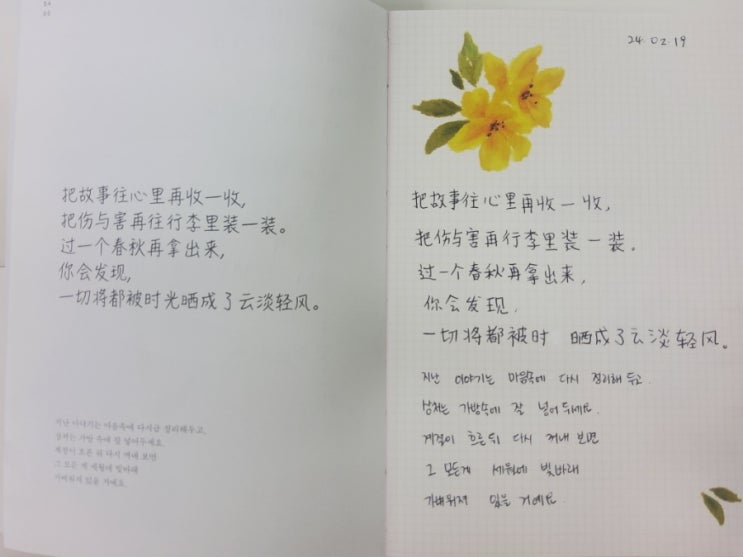 把故事往心里再收一收,
把伤与害再往行李里装一装。
过一个春秋再拿出来,
你会发现,
一切将都被时光晒成了云淡轻风。
지난 이야기는 마음속에 다시금 정리해두고,
상처는 가방 속에 잘 넣어두세요.
계절이 흐른 뒤 다시 꺼내 보면
그 모든 게 세월에 빛바래
가벼워져 있을 거예요.
24.02.19
把故事往心里再收一收,
把伤与害再行李里装一装。
过一个春秋再拿出来,
你会发现,
一切将都被时 晒成了云淡轻风。
지난 이야기는 마음속에 다시 정리해 두고.
상처는 가방속에 잘 넣어두세요.
계절이 흐른 뒤 다시 꺼내 보면
그 모든게 세월에 빛바래
가벼워져 있을 거예요.